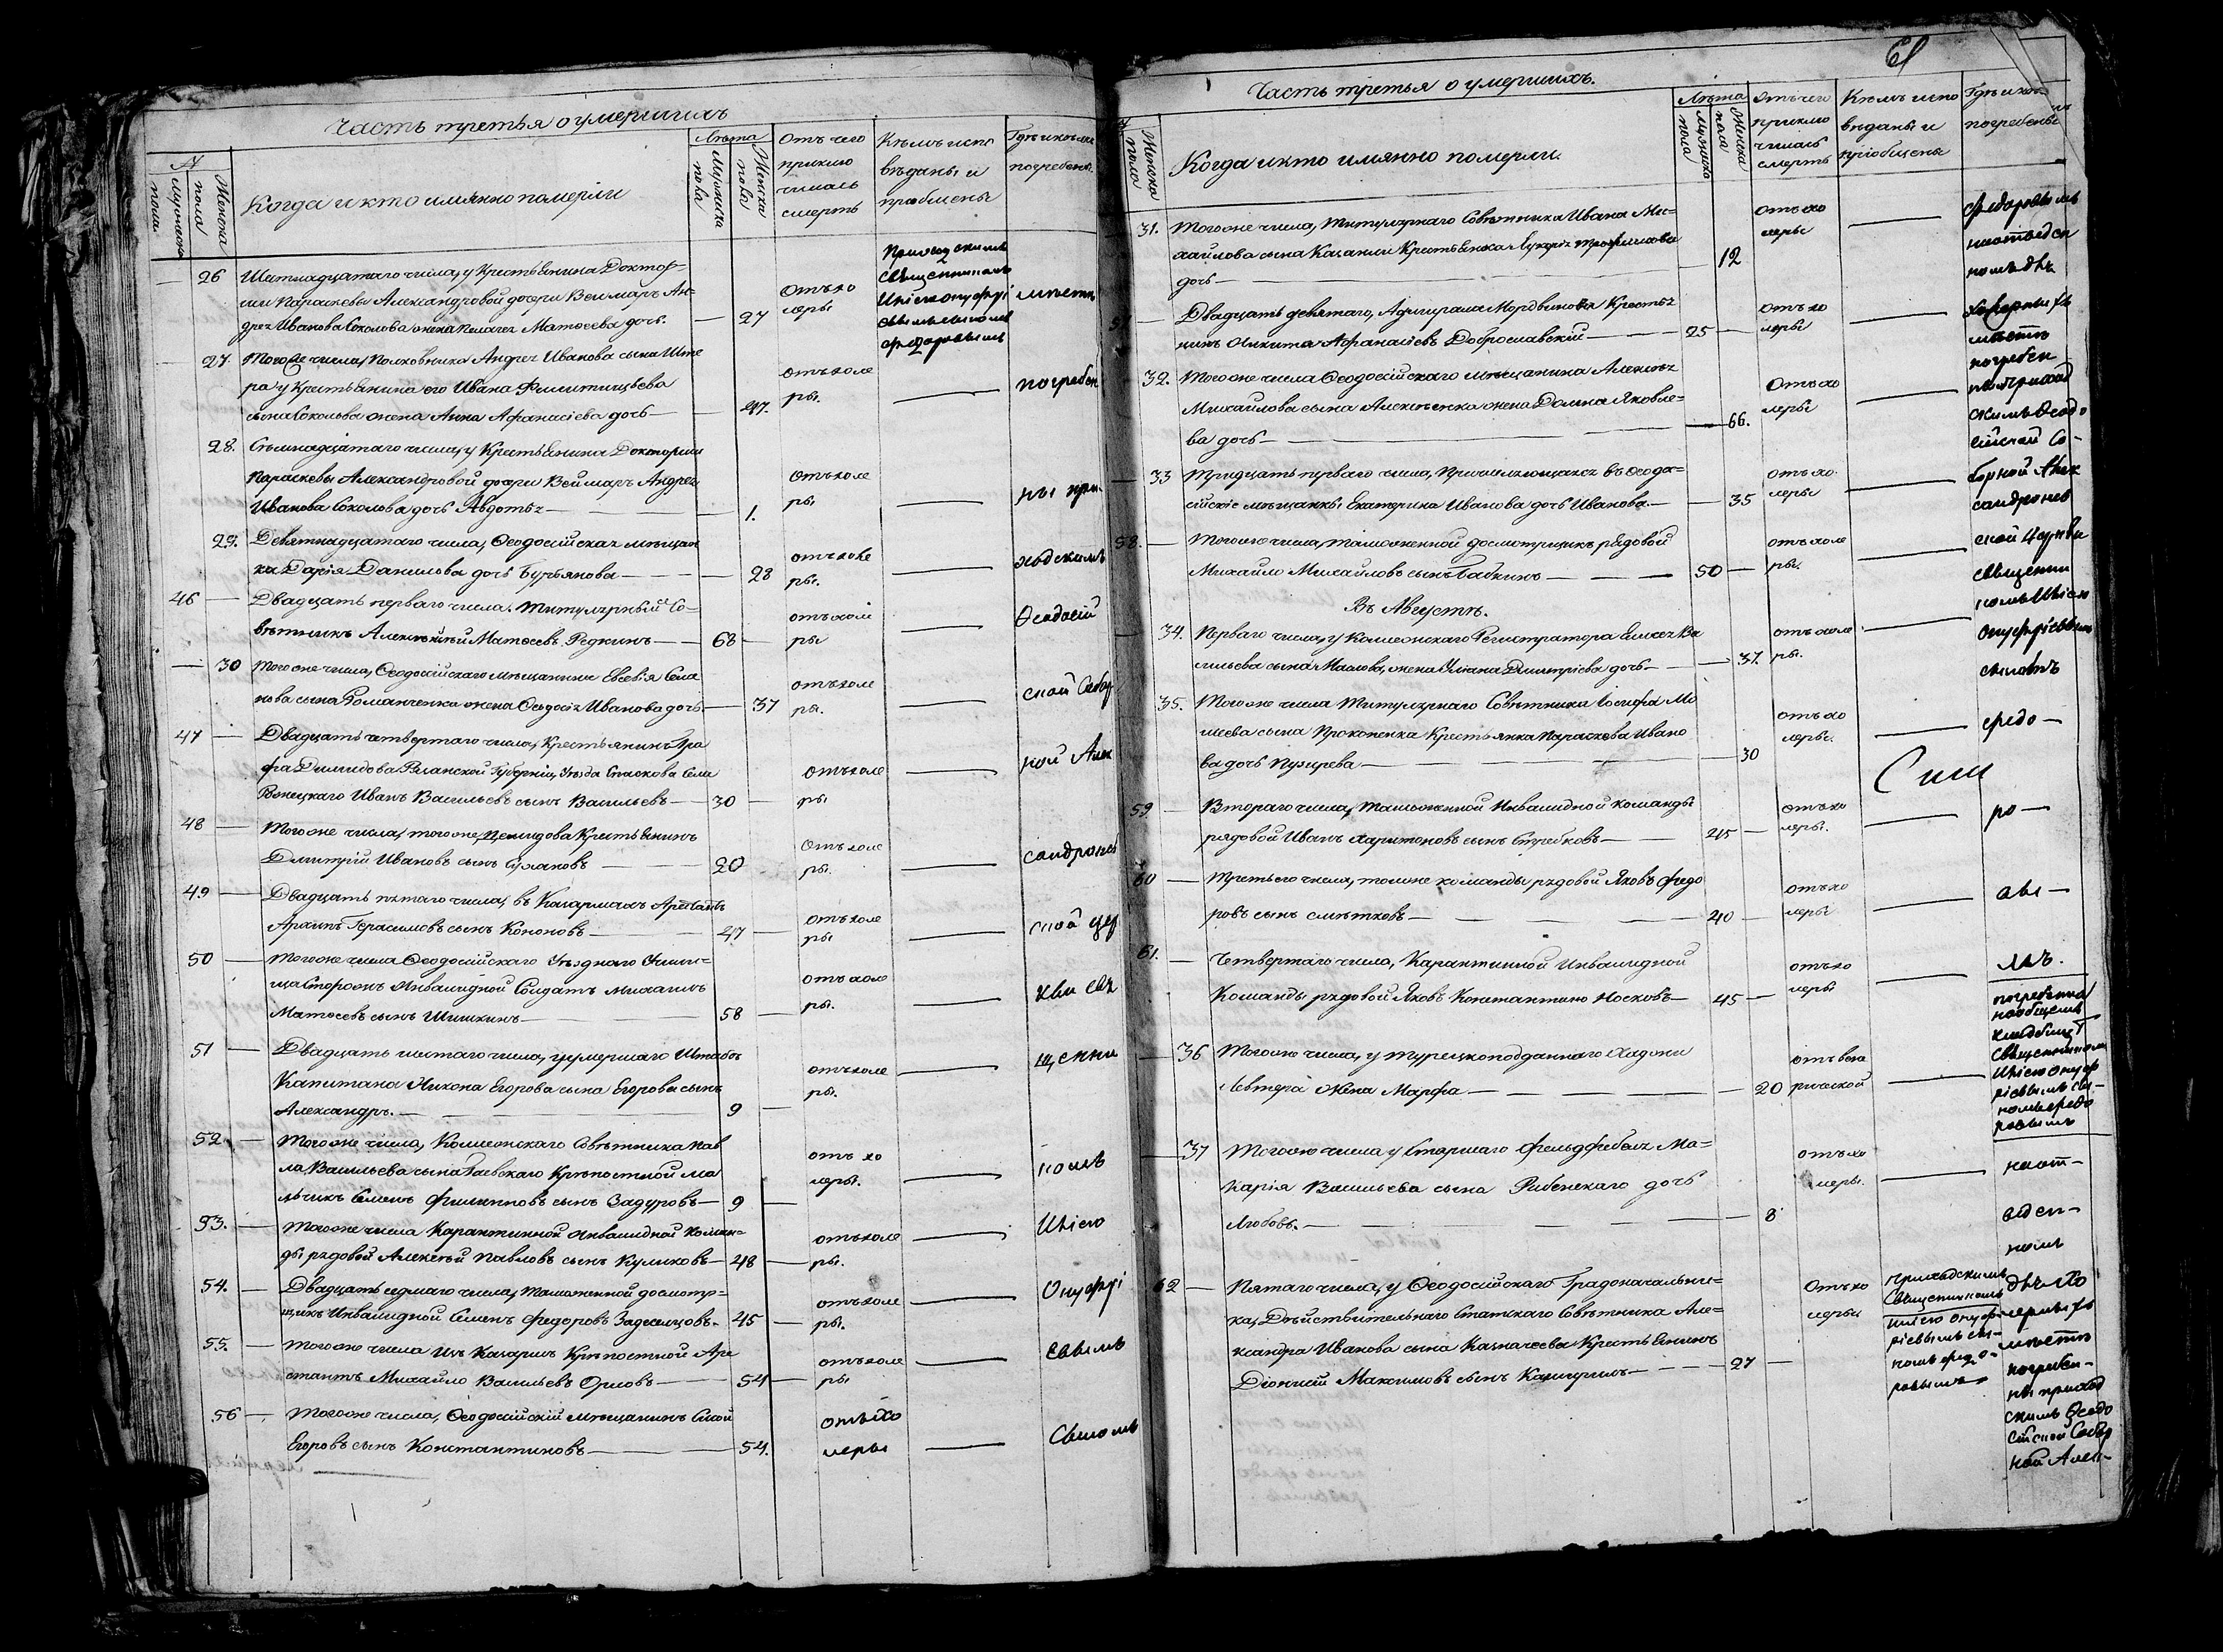 Часть третья о умершихъ
№
Мужеска пола
Женска пола
Когда и кто имянно померли
Лѣта
Мужеска пола
Женска пола
Отъ чего приключилась смерть
Кѣмъ исповѣданы и приобщены
Гдѣ и кѣмъ погребены
26 Шестнадцатаго числа, у Крестьянина Доктор-
ши Параскевы Александровой дочери Веймаръ Ан-
дрея Иванова Соколова жена Пелагея Матвеева дочь. — 27 отъ холеры
Приходскимъ
Священникомъ
Иліею Онуфрі
евымъ сыномъ
Федоровымъ
27. Того же числа, Полковника Андрея Иванова сына Ште
ра у Крестьянина его Ивана
сына Соколова жена Анна Афанасіева дочь — 47. отъ холе
ры. — погребен
28. Семнадцатаго числа, у Крестьянина Докторши
Параскевы Александровой дочери Веймаръ Андрея
Иванова Соколова дочь Авдотья — 1. отъ холе
ры — ны при
29. Девятнадцатаго числа, Ѳеодосійская мѣщан
ка Дарія Данилова дочь Бурьянова — 28 отъ холе
ры. — ходскимъ
46 — Двадцать перваго числа. Титулярный Со-
вѣтникъ Алексѣй Матвеевъ Редкинъ — 68 — отъ холе
ры — Ѳеодосій
30 Того же числа, Ѳеодосійскаго мѣщанина Евсевія Сема
нова сына Романченка жена Ѳеодосія Иванова дочь. — 37 отъ холе
ры. — ской Собор
47 — Двадцать четвертаго числа, Крестьянинъ Гра
фа Демидова Рязанской Губерніи, Уѣзда Спаскова Села
Иванъ Васильевъ сынъ Васильевъ — 30 — отъ холе
ры — ной Алек
48 — Того же числа, того же Демидова Крестьянинъ
Дмитрій Ивановъ сынъ — 20 отъ холе
ры. — сандронев
49 — Двадцать пятаго числа, въ Казармахъ Арестантъ
Архипъ Герасимовъ сынъ Кононовъ — 47 — отъ холе
ры — ской цер
50 — Того же числа Ѳеодосійскаго Уѣзднаго Учили-
ща Сторожъ Инвалидной Солдатъ Михаилъ
Матвеевъ сынъ Шишкинъ — 58 — отъ холе
ры. — кви свя
51 — Двадцать шестаго числа, у умершаго Штабсъ
Капитана Никона Егорова сына Егорова сынъ
Александръ. — 9 — отъ холе
ры. — щенни
52. — Того же числа, Колежскаго Совѣтника Пав
ла Васильева сына Гаевскаго Крѣпостной ма
льчикъ Семенъ Филипповъ сынъ Задуровъ — 9 — отъ хо
леры. — комъ
53. — Того же числа Карантинной Инвалидной Коман-
ды рядовой Алексѣй Павловъ сынъ Куликовъ — 48 — отъ холе
ры. — Иліею
54. — Двадцать седмаго числа, Таможенной досмотр-
щикъ Инвалидной Семенъ Федоровъ — 45 — отъ холе
ры. — Онуфрі
55. — Того же числа Изъ Казармъ Крѣпостной Аре
стантъ Михайло Васильевъ Орловъ — 54 — отъ холе
ры — евымъ
56 — Того же числа, Ѳеодосійскій мѣщанинъ
Егоровъ сынъ Константиновъ — 54. отъ хо
леры — Сыномъ
61
Часть третья о умершихъ.
Женска пола
Когда и кто имянно померли.
Лѣта
Мужеска пола
Женска пола
Отъ чего приключилась смерть
Кѣмъ исповѣданы и приобщены
погребены
31. Того же числа, Титулярнаго Совѣтника Ивана Ми-
хайлова сына Казанли Крестьянка Лукерія Трофимова
дочь — 12 отъ хо
леры — Федоровымъ
на отведен
номъ для
57 — Двадцать девятаго, Адмирала Мордвинова Кресть
нинъ Никита Афанасіевъ Доброславскій — 25 — отъ хо
леры — Холерныхъ
мѣстѣ
32. Того же числа Ѳеодосійскаго мѣщанина Алексѣя
Михайлова сына Алексѣенка жена Домна Яковле-
ва дочь — 66. отъ хо
леры — погребен
ны Приход
скимъ Ѳеодо
сійской Со-
33 Тридцать перваго числа, Причисляющаяся въ Ѳеодо-
сійскіе мѣщанкы Екатерина Иванова дочь Иванова. — 35 отъ хо
леры — борной Алек
сандронев
58. — Того же числа, Таможенной досмотрщикъ рядовой
Михайло Михайловъ сынъ Бабкинъ — 50 — отъ холе
ры. — ской Церкви
священни
комъ Иліею
Въ Августѣ.
34. Перваго числа, у Колежскаго Регистратора Ва
сильева сына Маслова, жена Уліана Дмитріева дочь — 37. отъ холе
ры. — Онуфріевымъ
сыномъ
35. Того же числа Титулярнаго Совѣтника Іосифа Мо
исеева сына Прокопенка Крестьянка Параскева Ивано
ва дочь Пузирева — 30 отъ хо
леры. — Федо —
59 — Втораго числа, Таможенной Инвалидной команды
рядовой Иванъ Харитоновъ сынъ Стребковъ — 45 — отъ хо
леры. — ро —
60 — Третьего числа, той же команды рядовой Яковъ Федо
ровъ сынъ Сметковъ — 40 — отъ хо
леры — вы —
61. — Четвертаго числа, Карантинной Инвалидной
Команды рядовой Яковъ Константино Носковъ — 45 — отъ хо
леры — мъ.
36 Того же числа, у турецкоподданнаго Хаджи
Левтерія жена Марфа — 20
погребена
на общемъ
кладбищѣ
Священникомъ
Иліею Онуф
ріевымъ сы-
номъ Федо
ровымъ
37 Того же числа у Старшаго Фельдфебеля Ма-
карія Васильева сына Рибенскаго дочь
Любовь. — 8 отъ хо
леры. — на от-
веден-
номъ
62 — Пятаго числа, у Ѳеодосійскаго Градоначальни-
ка, Дѣйствительнаго Статскаго Совѣтника Але-
ксандра Иванова сына Казначеева Крестьянинъ
Діонисій Максимовъ сынъ — 27 — отъ хо
леры
приходскимъ
Священникомъ
Иліею Онуф-
ріевымъ сы-
номъ Федо-
ровымъ
для Хо
лерныхъ
мѣстѣ
погребен-
ны приход
скимъ Ѳеодо
сійской Собор
ной Алек-